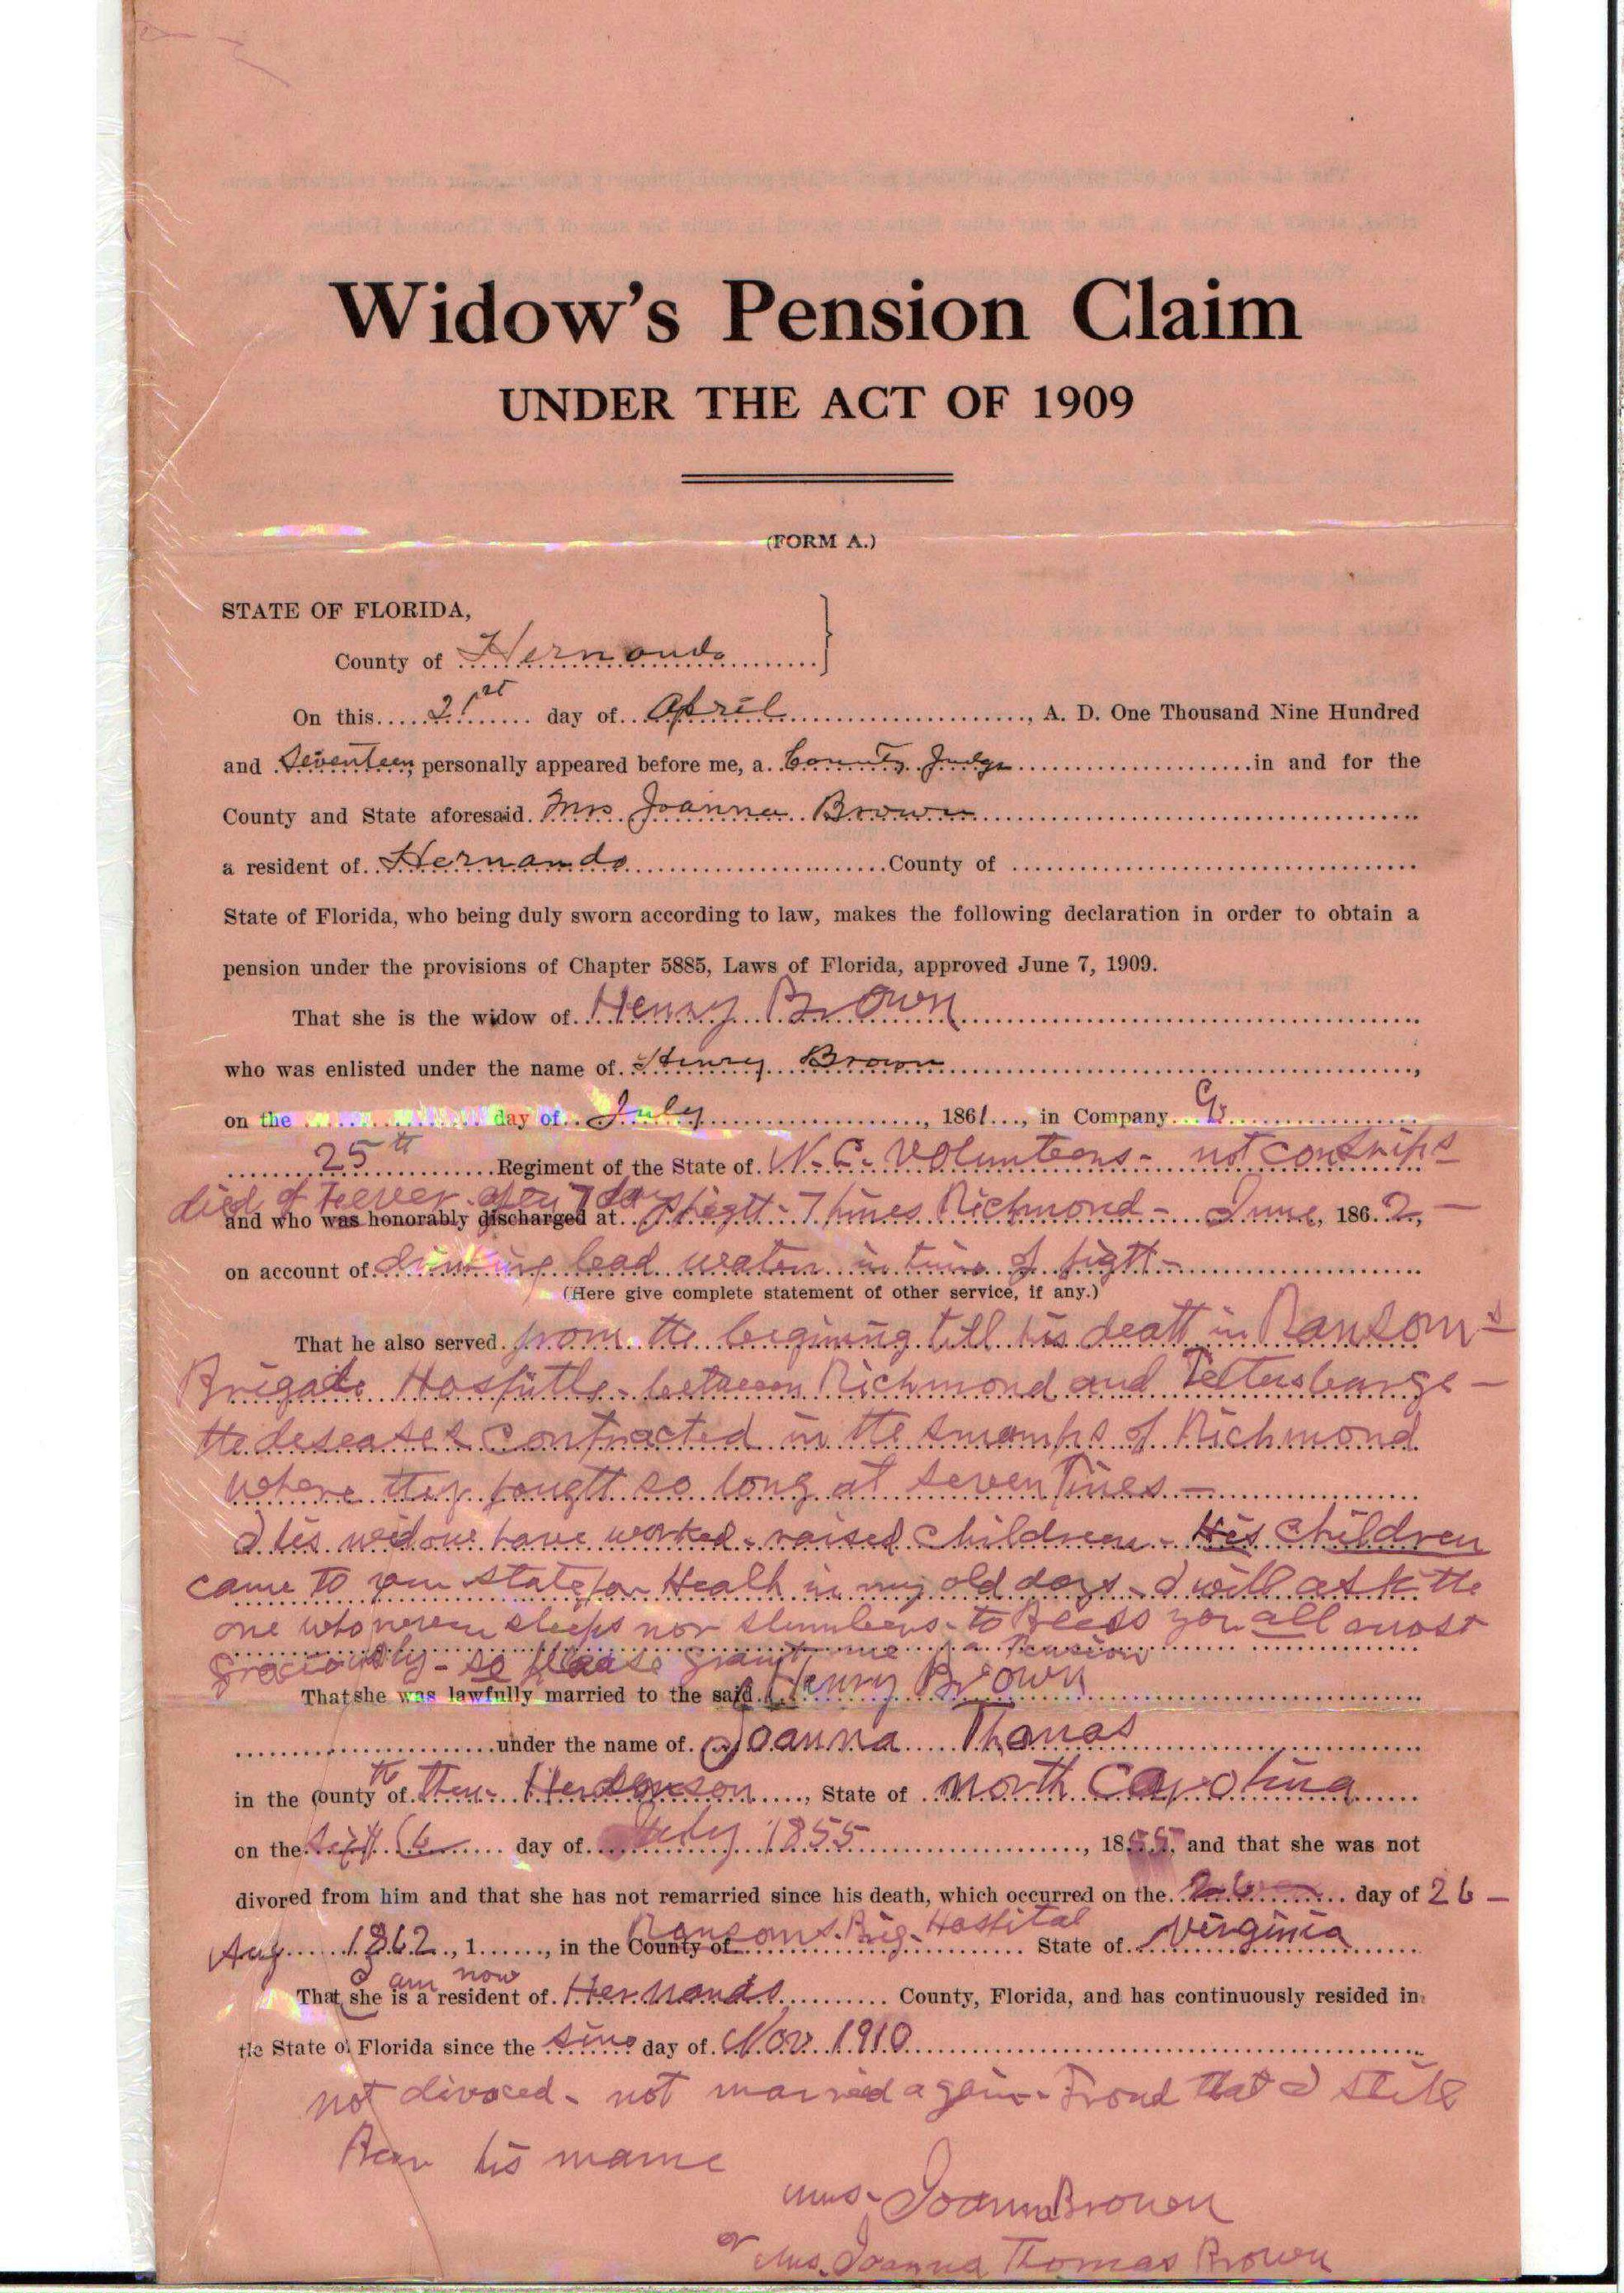 Widow's Pension Claim
UNDER THE ACT OF 1909
(FORM A.)
STATE OF FLORIDA,
County of Hernando
On this 21st day of April, A. D. One Thousand Nine Hundred
and Seventeen, personally appeared before me, a County Judge in and for the
County and State aforesaid Mrs Joanna Brown
a resident of Hernando County of
State of Florida, who being duly sworn according to law, makes the following declaration in order to obtain a
pension under the provisions of Chapter 5885, Laws of Florida, approved June 7, 1909.
That she is the widow of Henry Brown
who was enlisted under the name of Henry Brown,
on the day of July, 1861, in Company G
25th Regiment of the State of N. C. Volunteers - not conscripts
died of Feever after 7 day
and who was honorably discharged at fight - 7 Pines Richmond - June, 1862, -
on account of drinking bad water in time of fight -
(Here give complete statement of other service, if any.)
That he also served from the begining till his death in Ransom's
Brigade Hospittle - between Richmond and Pettersburge -
the deseases contracted in the swamps of Richmond
where they fought so long at seven Pines -
I his widow have worked - raised children - His children
came to your state for Health in my old days - I will ask the
one who never sleeps nor slumbers - to Bless you all most
graciously - so please grant me a Pension
That she was lawfully married to the said Henry Brown
under the name of Joanna Thomas
in the county of Henderson, State of North Carolina
on the 6 day of July 1855, 1855, and that she was not
divored from him and that she has not remarried since his death, which occurred on the 26 day of 26 -
Aug 1862, 1, in the County of Ransoms Brig - Hospital State of Virginia
I am now
That she is a resident of Hernando County, Florida, and has continuously resided in
the State of Florida since the since day of Nov 1910
not divoced - not married again - Proud that I still
Bear his name
Mrs - Joanna Brown
or Mrs. Joanna Thomas Brown